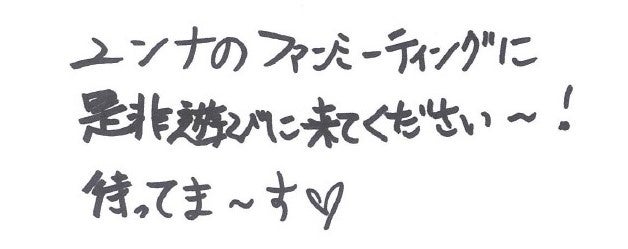 ユンナのファンミーティングに
是非遊びに来てください～!
待ってま～す♡